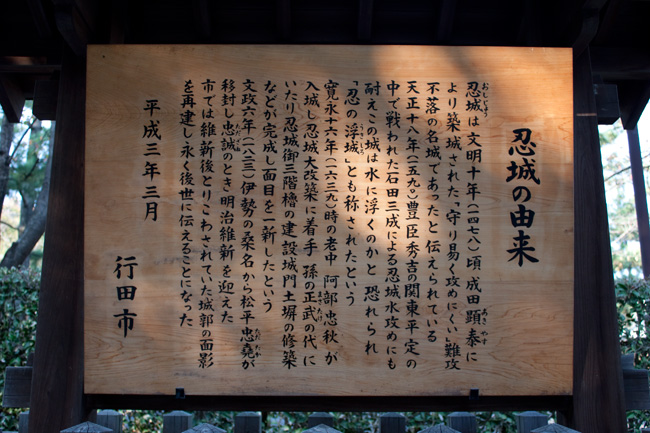 忍城の由来
忍城は文明十年(一四七八)頃、成田顕泰に
おしじょう
あきやす
より築城された「守り易く攻めにくい」難攻
不落の名城であったと伝えられている
天正十八年(一五九〇)豊臣秀吉の関東平定の
中で戦われた石田三成による忍城水攻めにも
耐えこの城は水に浮くのかと恐れられ
「忍の浮城」とも称されたという
寛永十六年(一六三九)時の老中 阿部忠秋が
入城し忍城大改築に着手 孫の正武の代に
まさたけ
いたり忍城御三階櫓の建設城門土塀の修築
などが完成し面目を一新したという
文政六年(一八二三)伊勢の桑名から松平忠堯が
ただたか
移封し忠誠のとき、明治維新を迎えた
市では維新後とりこわされていた城郭の面影
を再建し永く後世に伝えることになった
平成三年三月
行田市